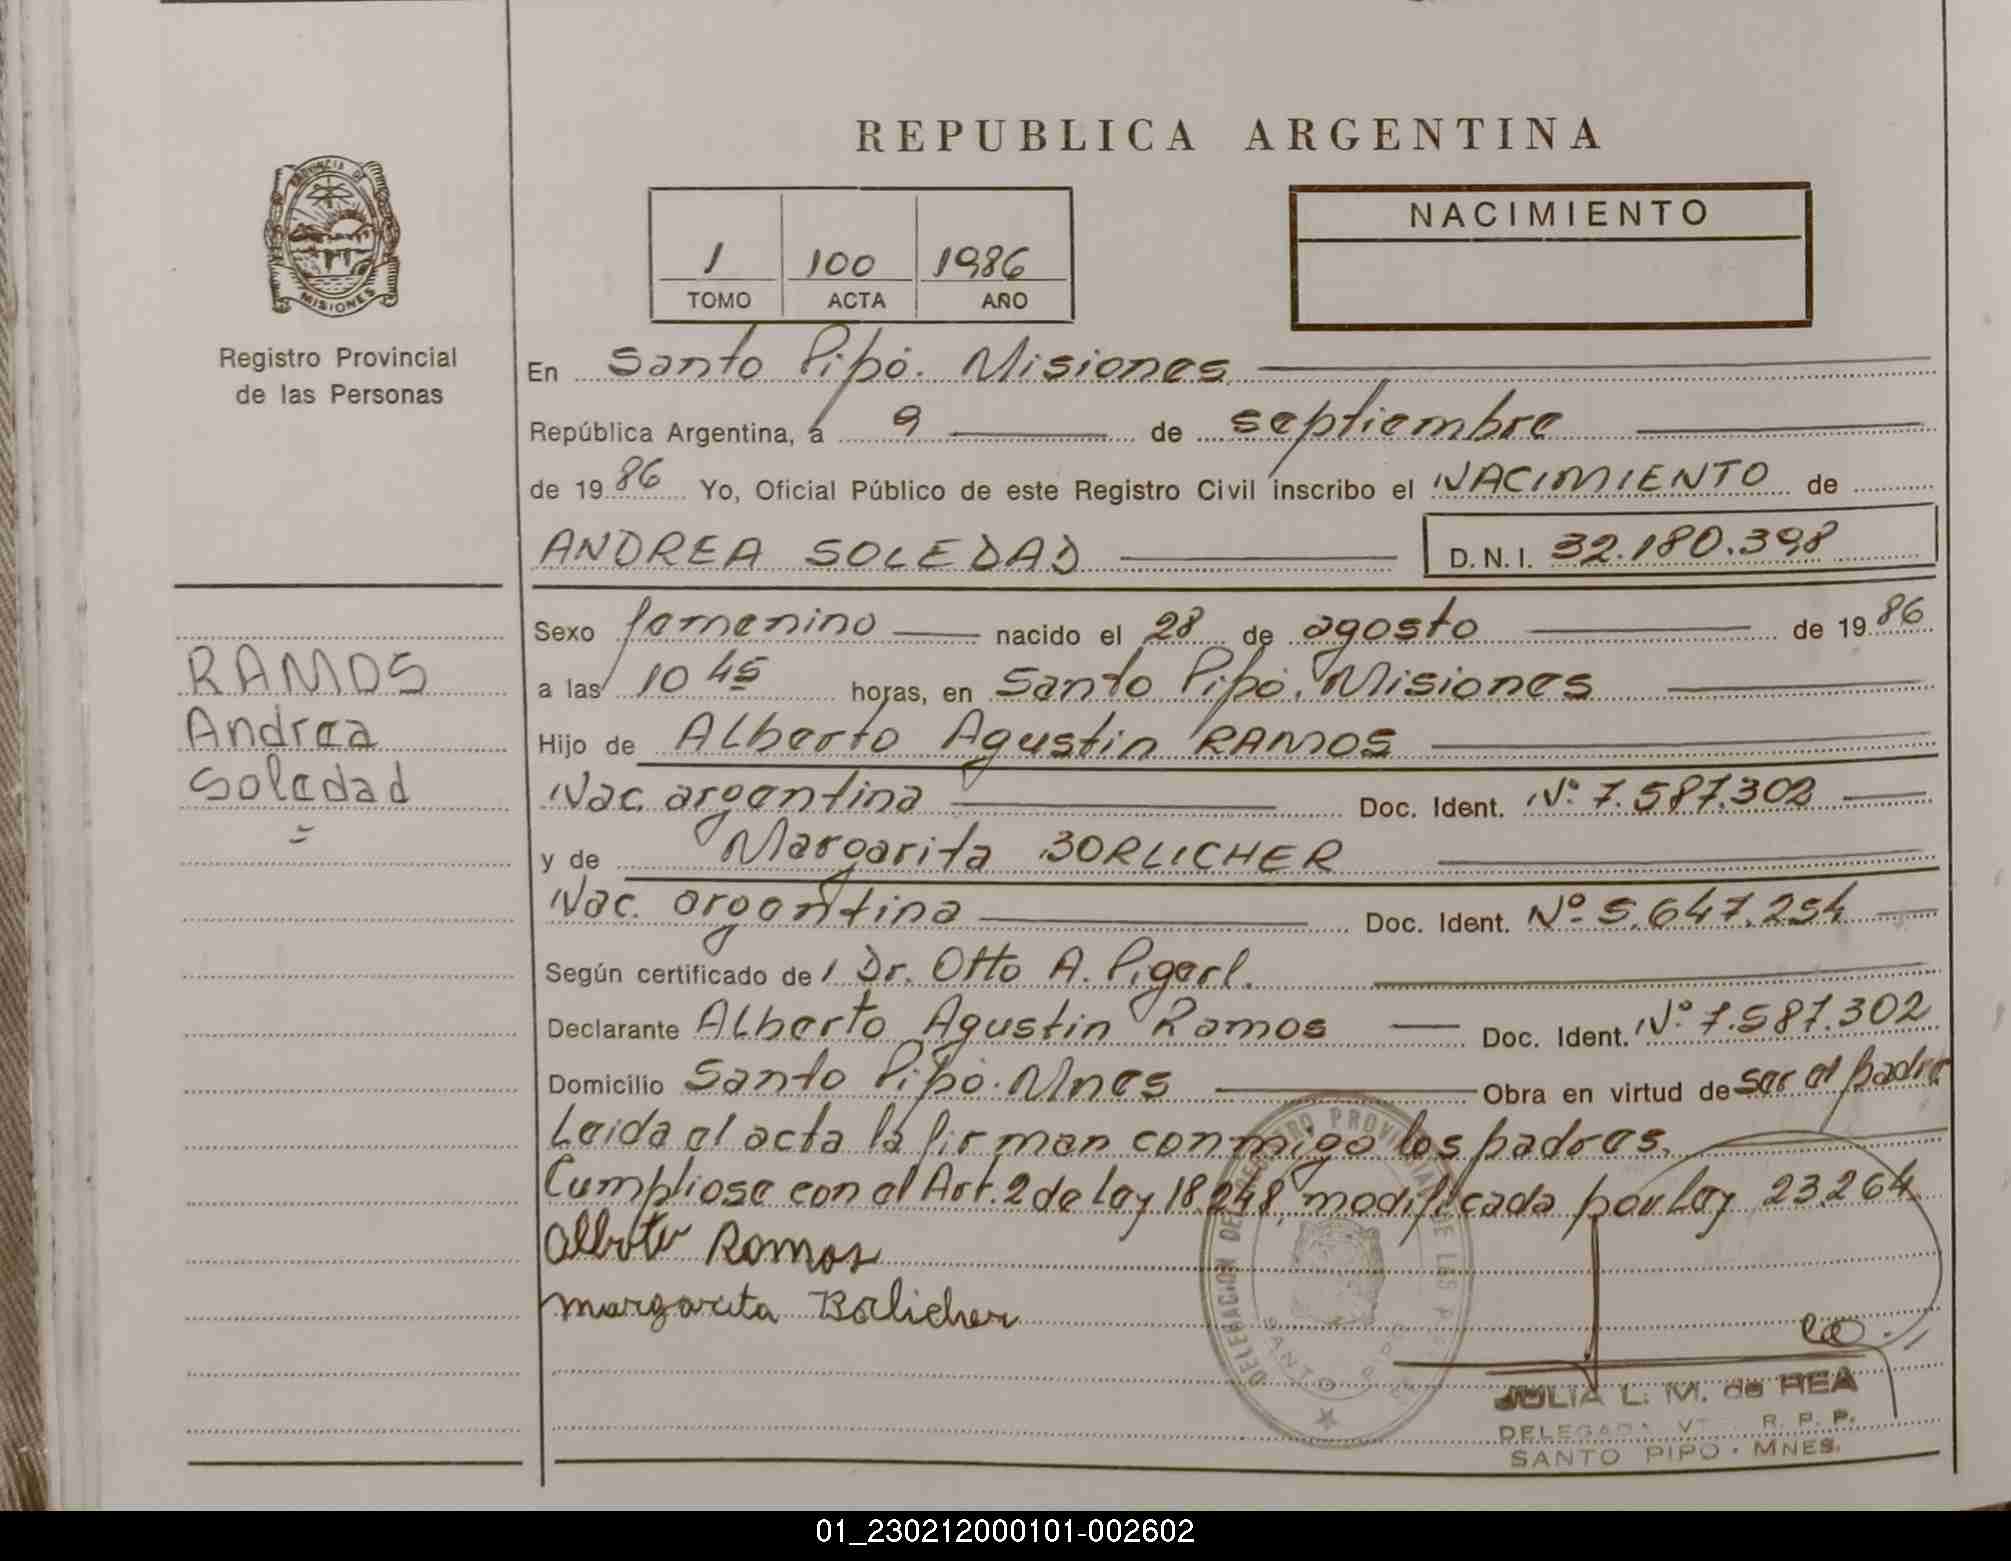 REPUBLICA ARGENTINA
PROVINCIA DE
MISIONES
Registro Provincial
de las Personas
1 100 1986
TOMO ACTA AÑO
NACIMIENTO
En Santo Pipó. Misiones
República Argentina, a 9 de septiembre
de 1986 Yo, Oficial Público de este Registro Civil inscribo el NACIMIENTO de
ANDREA SOLEDAD D.N.I. 32.180.398
RAMOS
Andrea
Soledad
Sexo femenino nacido el 28 de agosto de 1986
a las 10 45 horas, en Santo Pipó. Misiones
Hijo de Alberto Agustin RAMOS
Nac. argentina Doc. Ident. Nº 7.587.302
y de Margarita BORLICHER
Nac. argentina Doc. Ident. Nº 5.647.254
Según certificado de / Dr. Otto A. Pigerl.
Declarante Alberto Agustin Ramos Doc. Ident. Nº 7.587.302
Domicilio Santo Pipó. Mnes Obra en virtud de ser el padre
Leida el acta la firman conmigo los padres.
Cumpliose con el Art. 2 de ley 18.248, modificada por Ley 23.264
Alberto Ramos
margarita Borlicher
JULIA L. M. de REA
DELEGADA R. P. P.
SANTO PIPO - MNES.
01_230212000101-002602